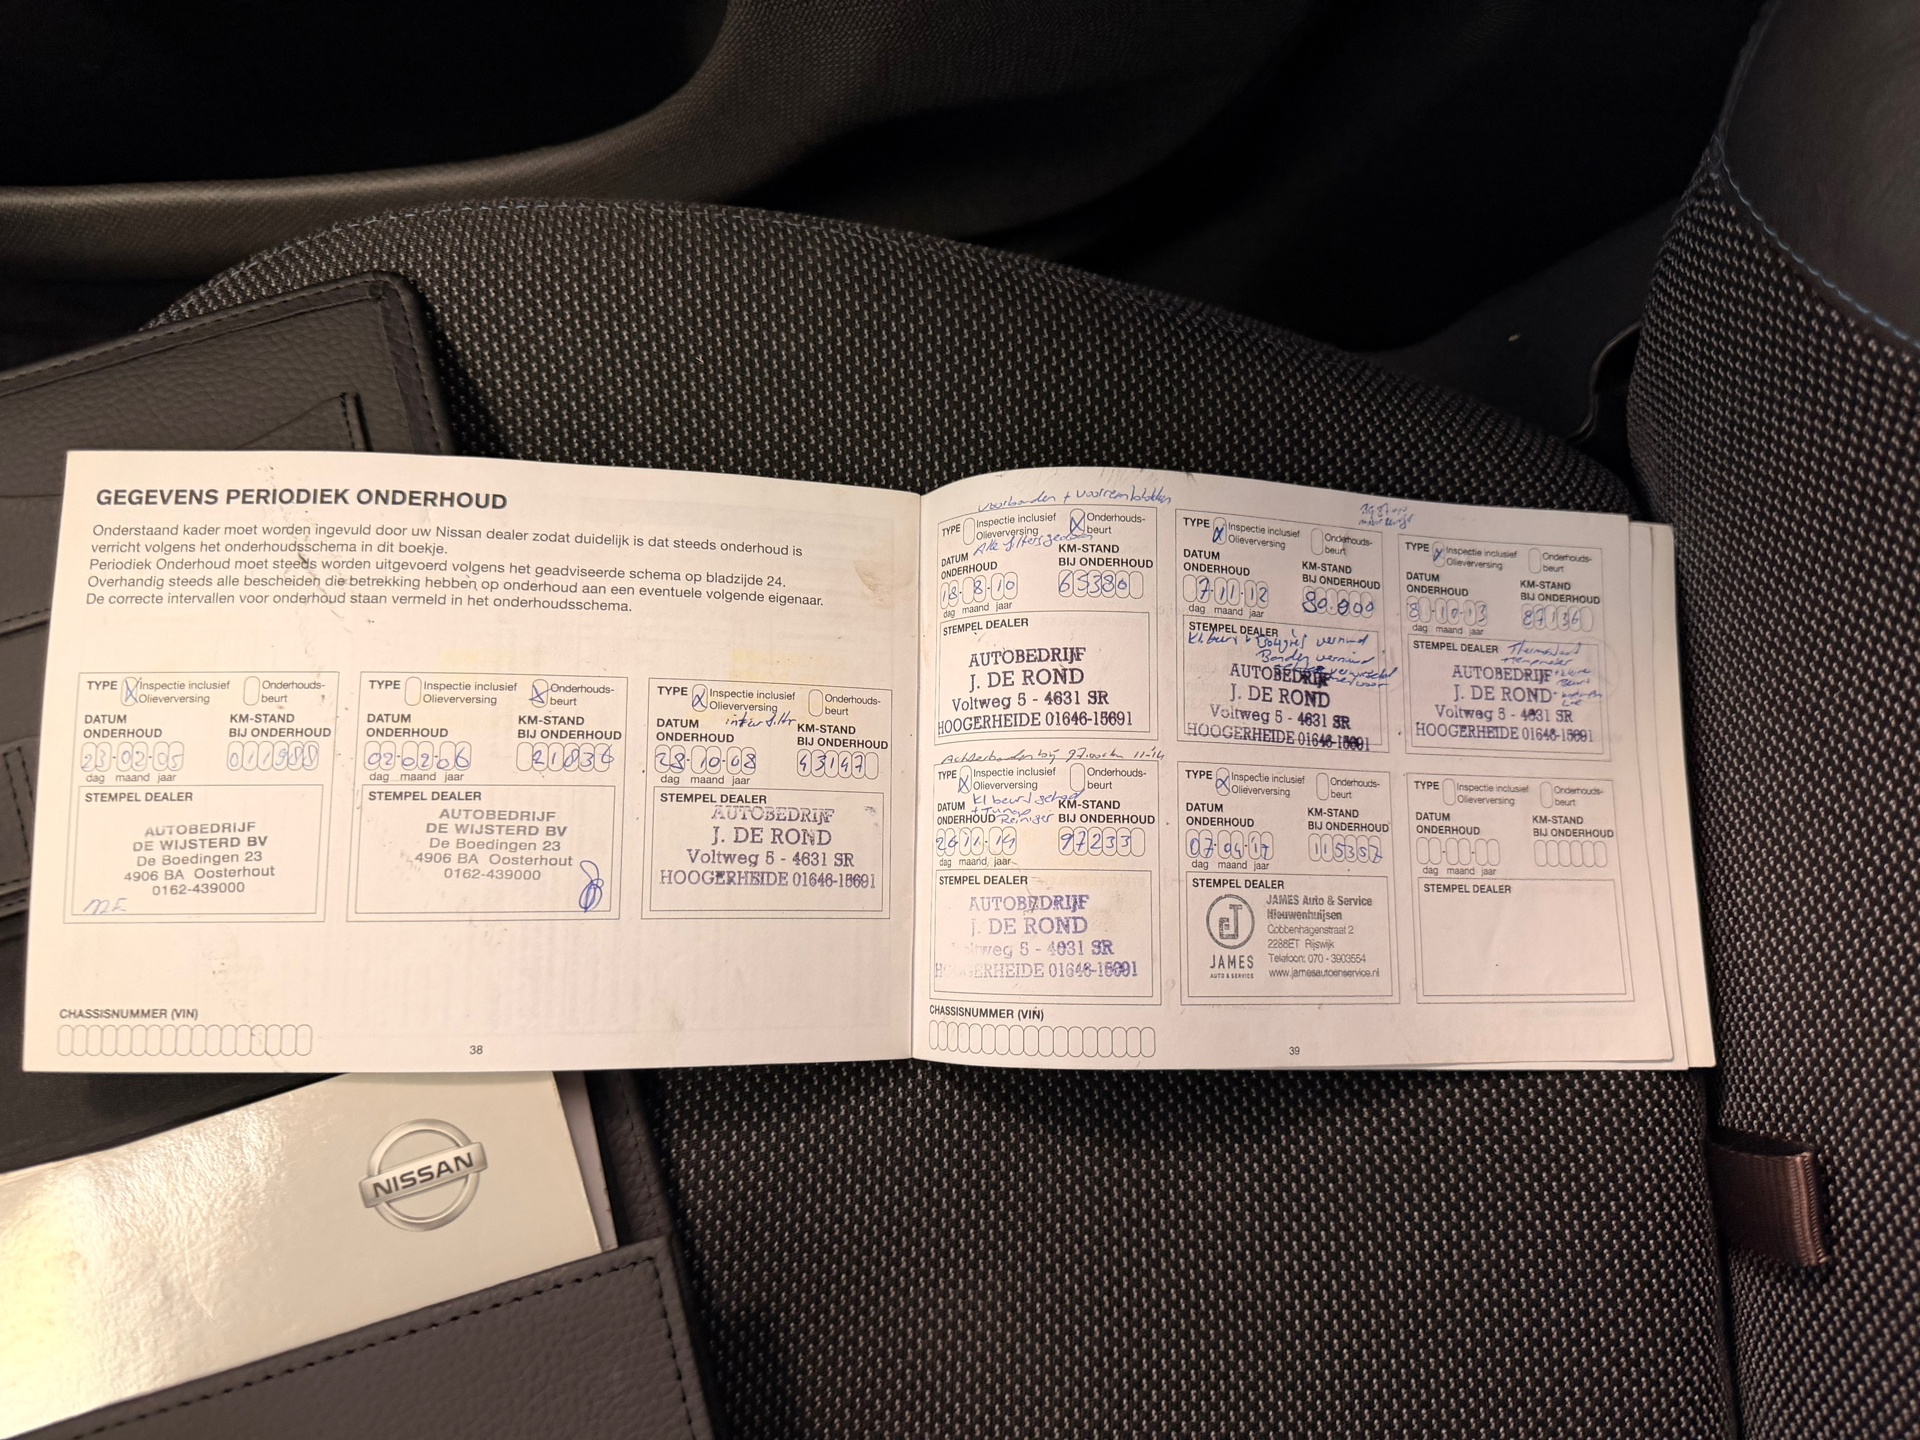 GEGEVENS PERIODIEK ONDERHOUD
Onderstaand kader moet worden ingevuld door uw Nissan dealer zodat duidelijk is dat steeds onderhoud is
verricht volgens het onderhoudsschema in dit boekje.
Periodiek Onderhoud moet steeds worden uitgevoerd volgens het geadviseerde schema op bladzijde 24.
Overhandig steeds alle bescheiden die betrekking hebben op onderhoud aan een eventuele volgende eigenaar.
De correcte intervallen voor onderhoud staan vermeld in het onderhoudsschema.
TYPE X Inspectie inclusief Olieverversing Onderhouds-beurt
DATUM ONDERHOUD KM-STAND BIJ ONDERHOUD
23-02-05 011988
dag maand jaar
STEMPEL DEALER
AUTOBEDRIJF
DE WIJSTERD BV
De Boedingen 23
4906 BA Oosterhout
0162-439000
TYPE Inspectie inclusief Olieverversing X Onderhouds-beurt
DATUM ONDERHOUD KM-STAND BIJ ONDERHOUD
02-02-06 21834
dag maand jaar
STEMPEL DEALER
AUTOBEDRIJF
DE WIJSTERD BV
De Boedingen 23
4906 BA Oosterhout
0162-439000
TYPE X Inspectie inclusief Olieverversing Onderhouds-beurt
DATUM ONDERHOUD KM-STAND BIJ ONDERHOUD
28-10-08 43147
dag maand jaar
STEMPEL DEALER
AUTOBEDRIJF
J. DE ROND
Voltweg 5 - 4631 SR
HOOGERHEIDE 01646-15691
CHASSISNUMMER (VIN)
38
voorbanden + voorremblokken
TYPE Inspectie inclusief Olieverversing X Onderhouds-beurt
Alle filters
DATUM ONDERHOUD KM-STAND BIJ ONDERHOUD
18-8-10 65380
dag maand jaar
STEMPEL DEALER
AUTOBEDRIJF
J. DE ROND
Voltweg 5 - 4631 SR
HOOGERHEIDE 01646-15691
TYPE X Inspectie inclusief Olieverversing Onderhouds-beurt
DATUM ONDERHOUD KM-STAND BIJ ONDERHOUD
7-11-12 80.000
dag maand jaar
STEMPEL DEALER
Kl beurt
Banden
AUTOBEDRIJF
J. DE ROND
Voltweg 5 - 4631 SR
HOOGERHEIDE 01646-15691
TYPE X Inspectie inclusief Olieverversing Onderhouds-beurt
DATUM ONDERHOUD KM-STAND BIJ ONDERHOUD
8-10-13 87136
dag maand jaar
STEMPEL DEALER
AUTOBEDRIJF
J. DE ROND
Voltweg 5 - 4631 SR
HOOGERHEIDE 01646-15691
Achterbanden bij 97.000km 11-14
TYPE X Inspectie inclusief Olieverversing Onderhouds-beurt
Kl beurt
+ Tunap
Reiniger
DATUM ONDERHOUD KM-STAND BIJ ONDERHOUD
26-11-14 97233
dag maand jaar
STEMPEL DEALER
AUTOBEDRIJF
J. DE ROND
Voltweg 5 - 4631 SR
HOOGERHEIDE 01646-15691
TYPE X Inspectie inclusief Olieverversing Onderhouds-beurt
DATUM ONDERHOUD KM-STAND BIJ ONDERHOUD
07-04-17 115357
dag maand jaar
STEMPEL DEALER
JAMES
AUTO & SERVICE
JAMES Auto & Service
Nieuwenhuijsen
Cobbenhagenstraat 2
2288ET Rijswijk
Telefoon: 070 - 3903554
www.jamesautoenservice.nl
TYPE Inspectie inclusief Olieverversing Onderhouds-beurt
DATUM ONDERHOUD KM-STAND BIJ ONDERHOUD
dag maand jaar
STEMPEL DEALER
CHASSISNUMMER (VIN)
39
NISSAN